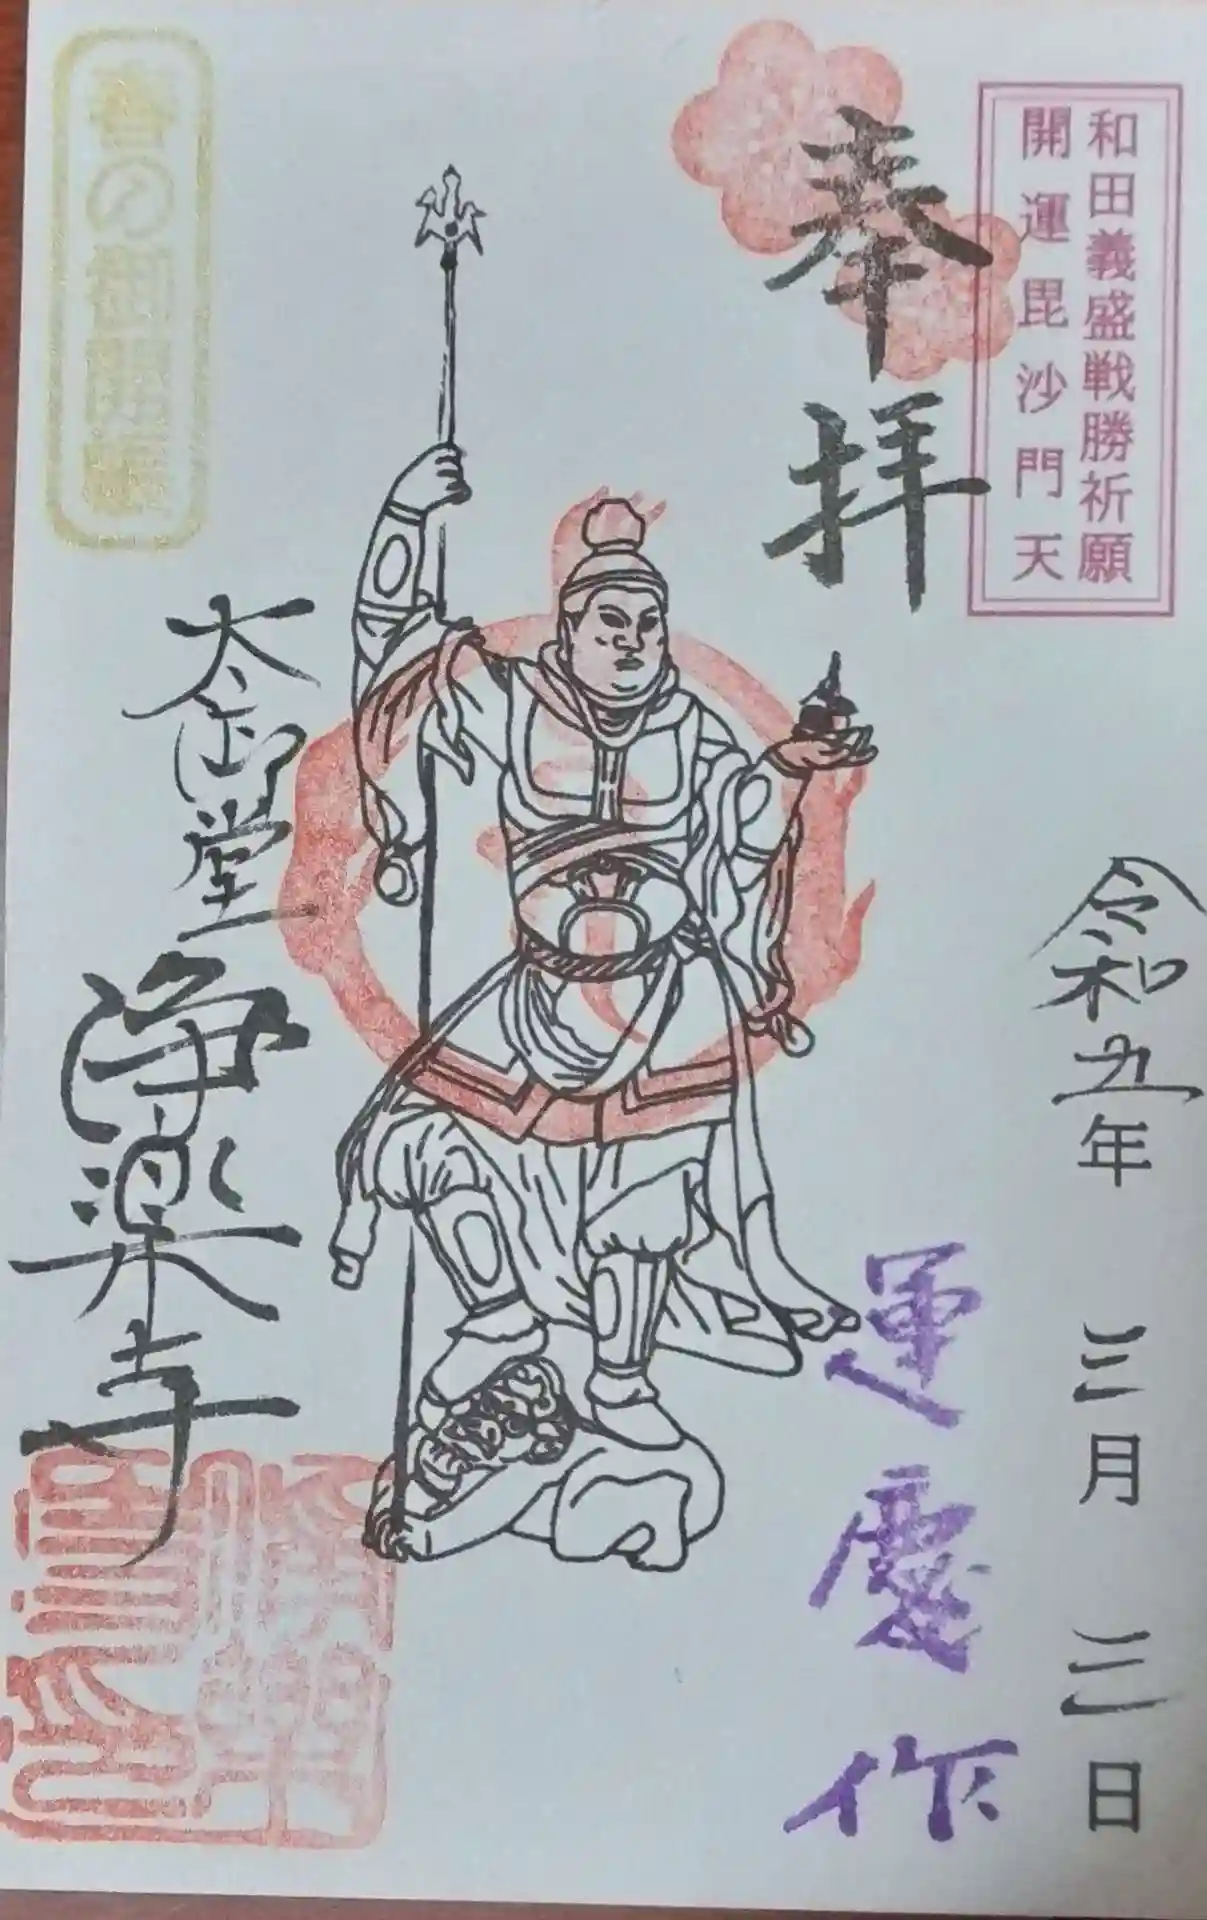 和田義盛戦勝祈願
開運毘沙門天
奉拝
令和五年 三月 三日
運慶作
春の御開帳
大御堂
浄楽寺